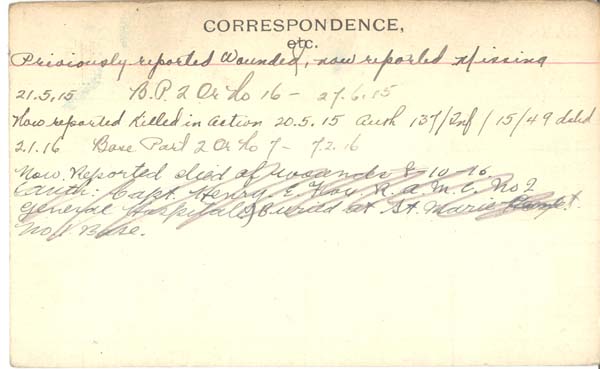 CORRESPONDENCE,
etc.
Priviously reported Wounded, now reported Missing
21.5.15 B.P. 2 Or No 16 - 27.6.15
Now reported Killed in Action 20.5.15 Auth 137/Inf/15/49 dated
2.1.16 Base Part 2 Or No 7 - 7.2.16
Now. Reported died of wounds 8 10 16
(auth: Capt. Henry E. R.A.M.C. No 2
General Hospital) Buried at St. Marie
No 1 Base.